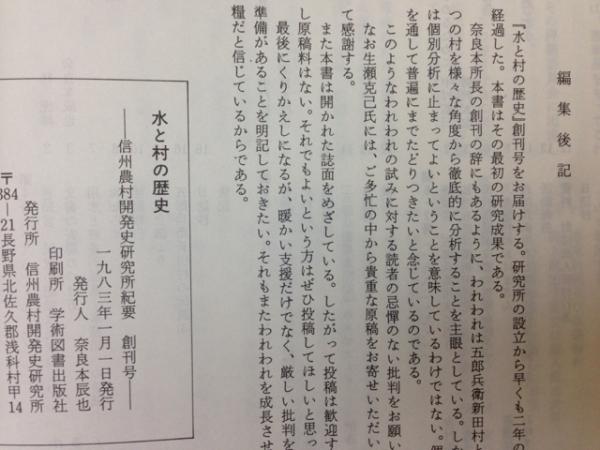 編集後記
『水と村の歴史』創刊号をお届けする。研究所の設立から早くも二年の
経過した。本書はその最初の研究成果である。
奈良本所長の創刊の辞にもあるように、われわれは五郎兵衛新田村と
つの村を様々な角度から徹底的に分析することを主眼としている。しか
は個別分析に止まってよいということを意味しているわけではない。個
を通して普遍にまでたどりつきたいと念じているのである。
このようなわれわれの試みに対する読者の忌憚のない批判をお願い
なお生瀬克己氏には、ご多忙の中から貴重な原稿をお寄せいただい
て感謝する。
また本書は開かれた誌面をめざしている。したがって投稿は歓迎す
し原稿料はない。それでもよいという方はぜひ投稿してほしいと思っ
最後にくりかえしになるが、暖かい支援だけでなく、厳しい批判を
準備があることを明記しておきたい。それもまたわれわれを成長させ
糧だと信じているからである。
水と村の歴史
―信州農村開発史研究所紀要 創刊号―
一九八三年一月一日発行
発行人 奈良本辰也
印刷所 学術図書出版社
発行所 信州農村開発史研究所
〒384―21長野県北佐久郡浅科村甲14